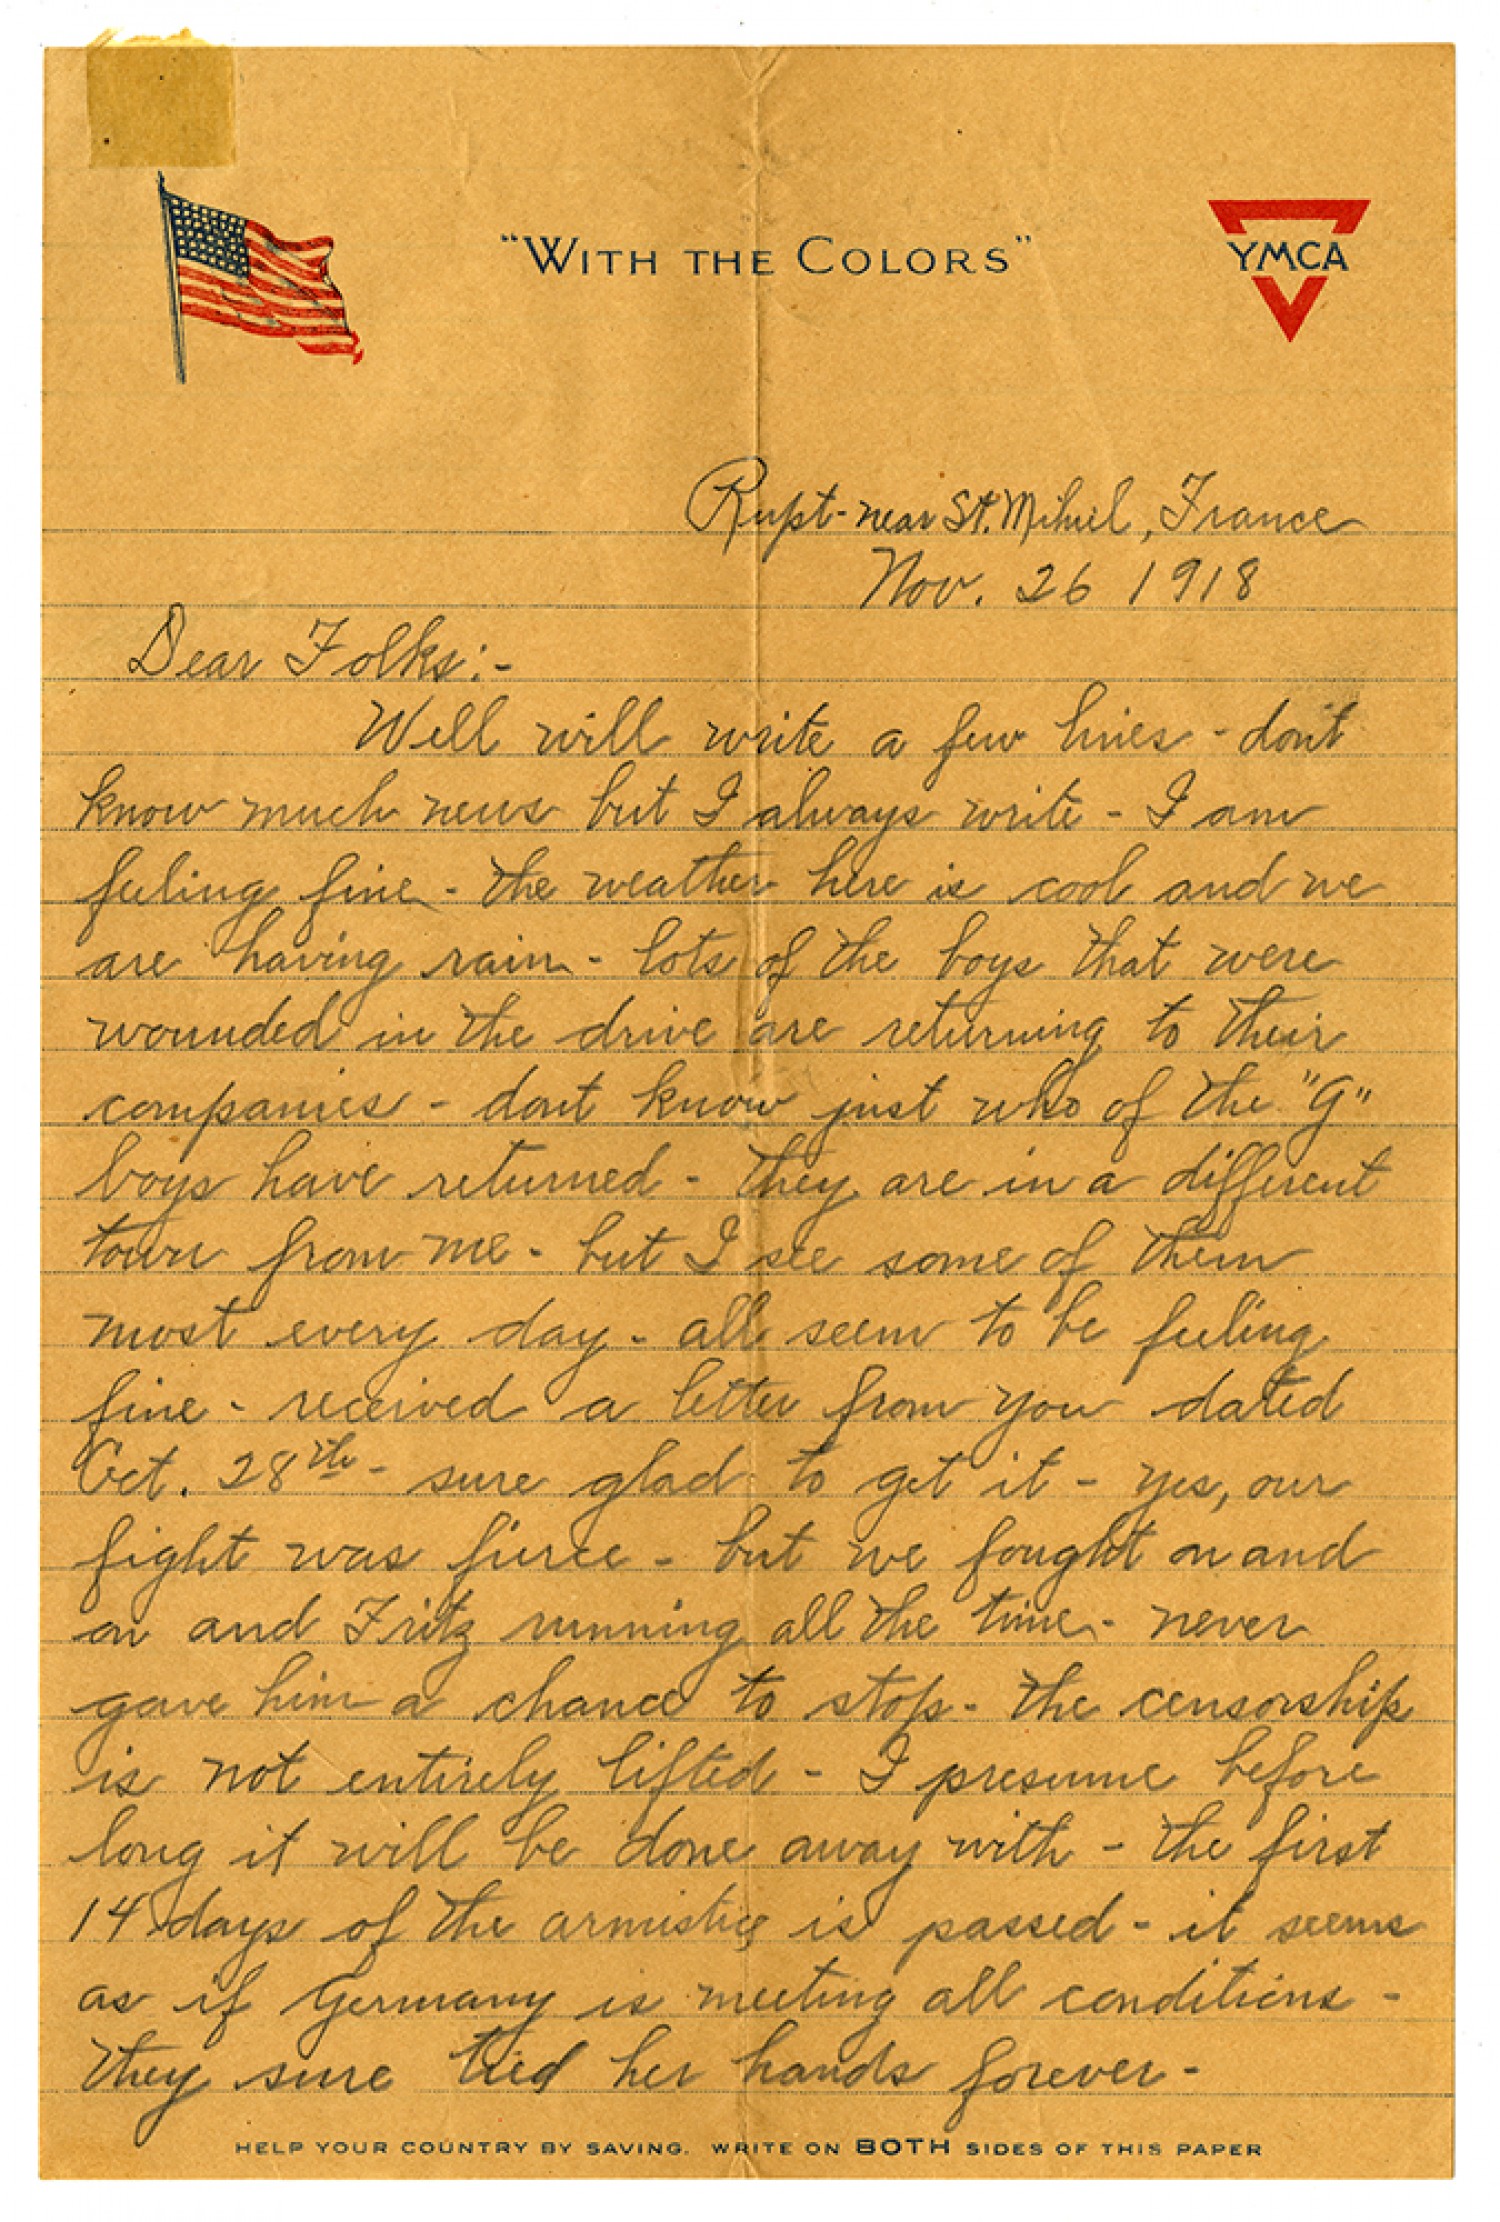 "WITH THE COLORS"
YMCA
Rupt-near St. Mihiel, France
Nov. 26 1918
Dear Folks:-
Well will write a few lines - don't
know much news but I always write - I am
feeling fine - the weather here is cool and we
are having rain - lots of the boys that were
wounded in the drive are returning to their
companies - dont know just who of the "G"
boys have returned - they are in a different
town from me - but I see some of them
most every day - all seem to be feeling
fine - received a letter from you dated
Oct. 28th - sure glad to get it - yes, our
fight was fierce - but we fought on and
on and Fritz running all the time - never
gave him a chance to stop - the censorship
is not entirely lifted - I presume before
long it will be done away with - the first
14 days of the armistice is passed - it seems
as if Germany is meeting all conditions -
they sure tied her hands forever -
HELP YOUR COUNTRY BY SAVING. WRITE ON BOTH SIDES OF THIS PAPER